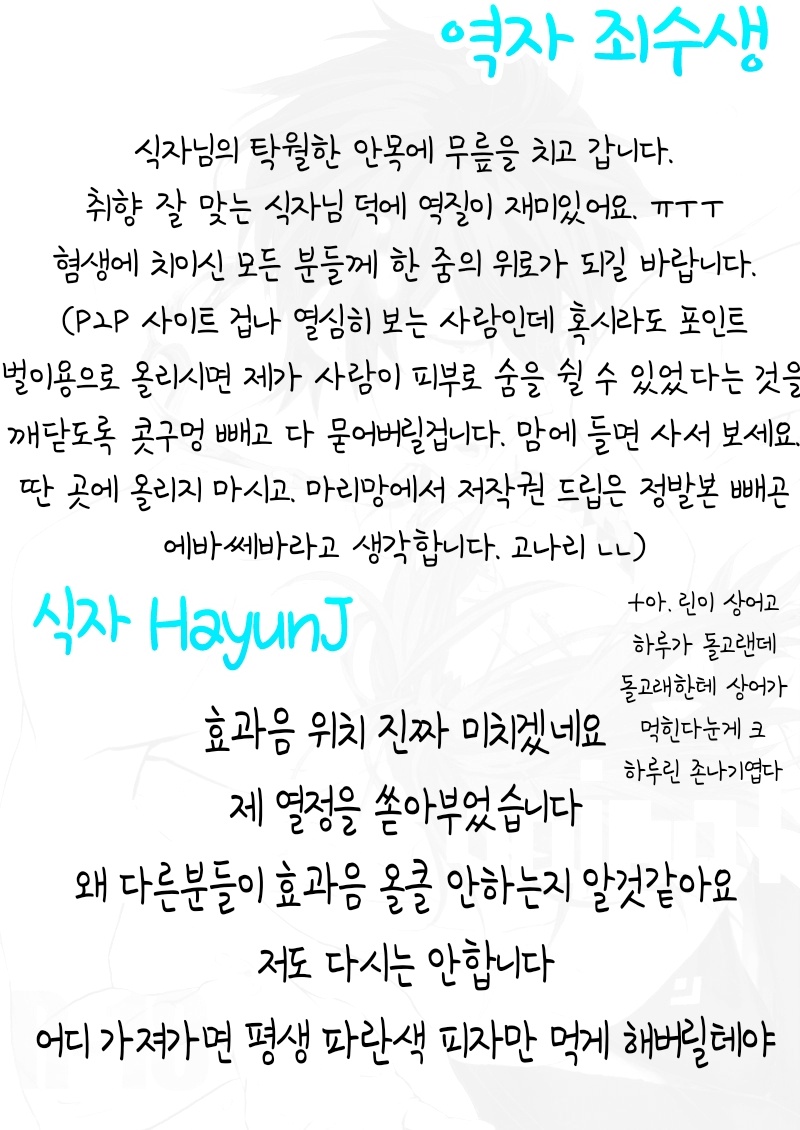 역자 죄수생
식자님의 탁월한 안목에 무릎을 치고 갑니다.
취향 잘 맞는 식자님 덕에 역질이 재미있어요. ㅠㅜㅜ
혐생에 치이신 모든 분들께 한 줌의 위로가 되길 바랍니다.
(P2P 사이트 겁나 열심히 보는 사람인데 혹시라도 포인트
벌이용으로 올리시면 제가 사람이 피부로 숨을 쉴 수 있었다는 것을
깨닫도록 콧구멍 빼고 다 묻어버릴겁니다. 맘에 들면 사서 보세요.
딴 곳에 올리지 마시고. 마리망에서 저작권 드립은 정발본 빼곤
에바쎄바라고 생각합니다. 고나리 ㄴㄴ)
식자 HayunJ
+아. 린이 상어고
하루가 돌고랜데
돌고래한테 상어가
먹힌다눈게 크
하루린 존나기엽다
효과음 위치 진짜 미치겠네요
제 열정을 쏟아부었습니다
왜 다른분들이 효과음 올클 안하는지 알것같아요
저도 다시는 안합니다
어디 가져가면 평생 파란색 피자만 먹게 해버릴테야